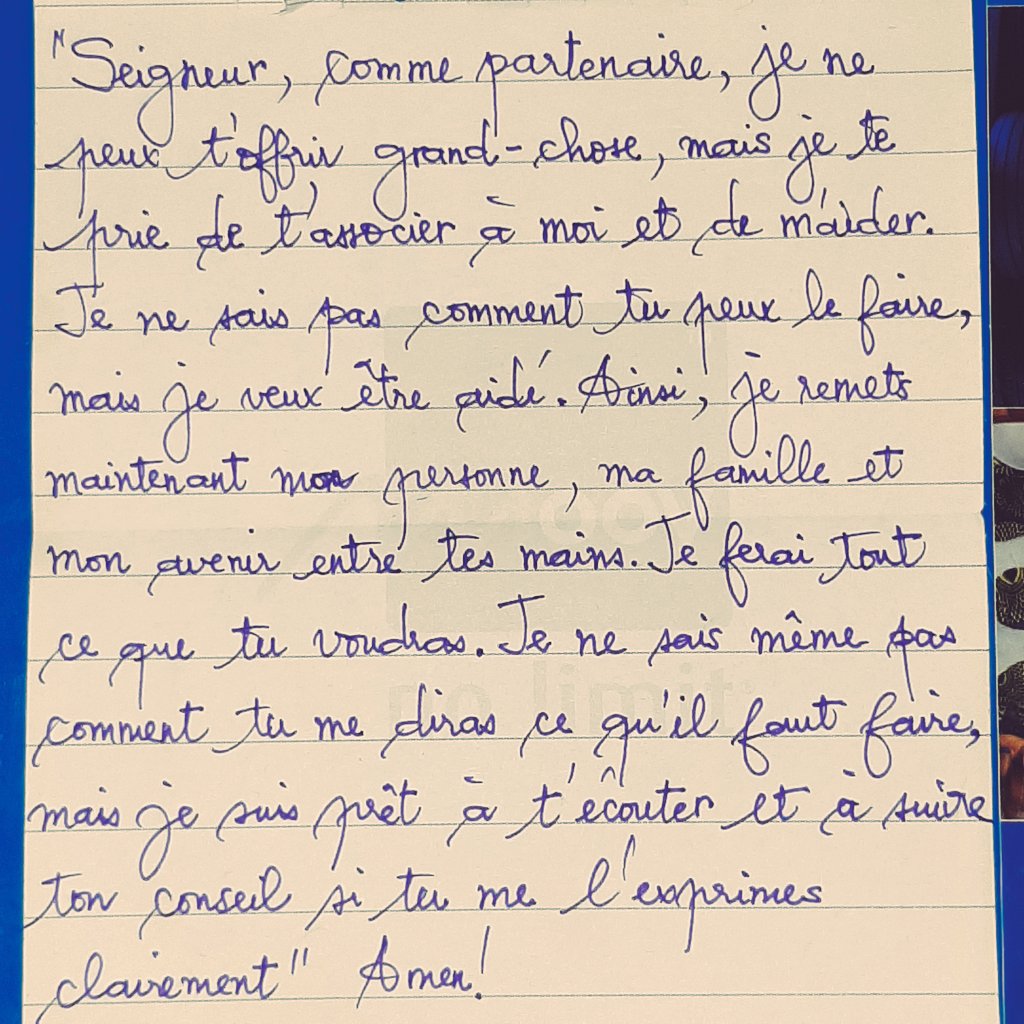 "Seigneur, comme partenaire, je ne
peux t'offrir grand-chose, mais je te
prie de t'associer à moi et de m'aider.
Je ne sais pas comment tu peux le faire,
mais je veux être aidé. Ainsi, je remets
maintenant mon personne, ma famille et
mon avenir entre tes mains. Je ferai tout
ce que tu voudras. Je ne sais même pas
comment tu me diras ce qu'il faut faire,
mais je suis prêt à t'écouter et à suivre
ton conseil si tu me l'exprimes
clairement" Amen!
no limit